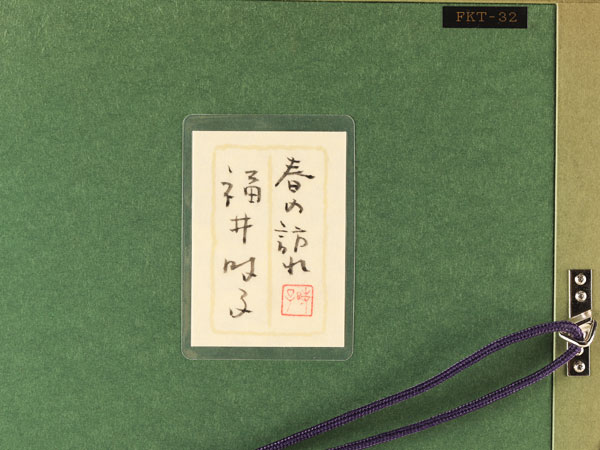 FKT-32
春の訪れ
福井時子